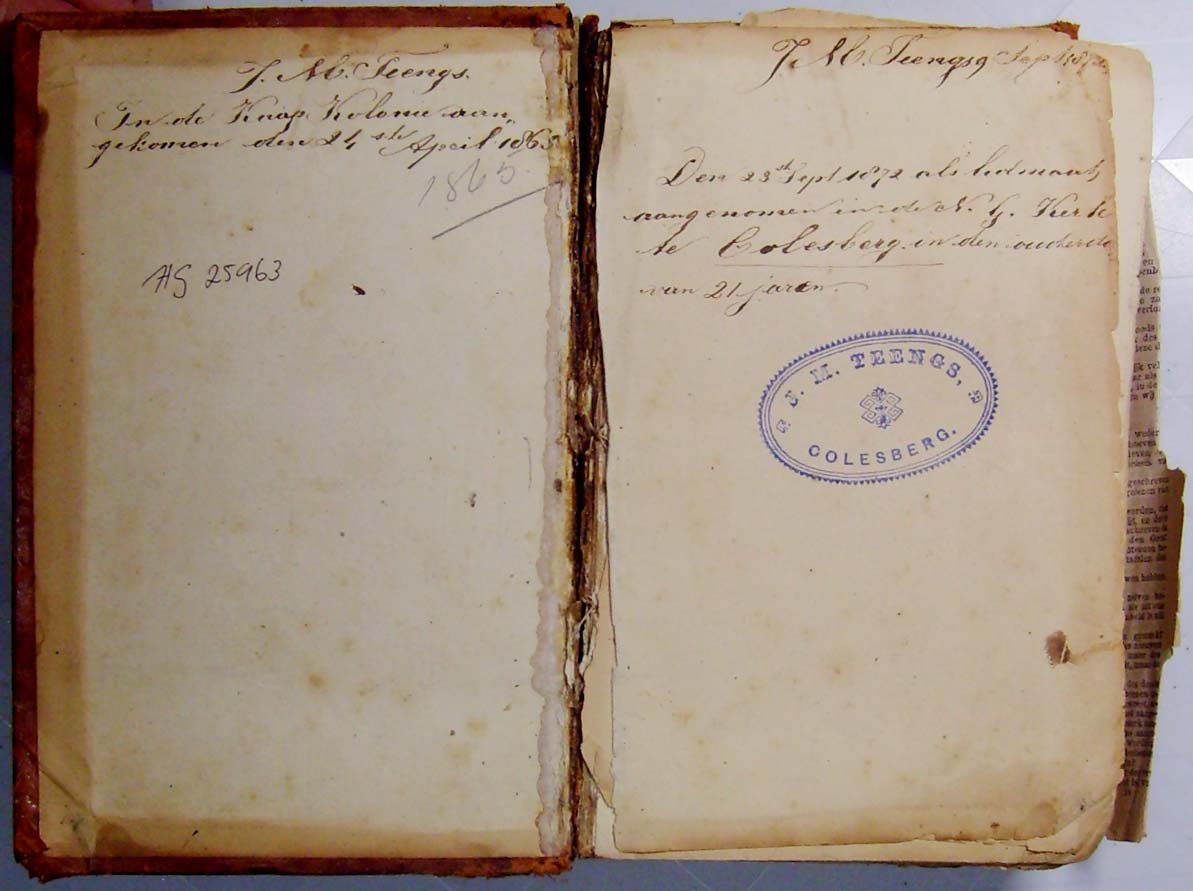 J. M. Teengs.
In de Kaap Kolonie aan,
gekomen den 24 ste April 1865
1865.
HG 25963
J. M. Teengs 9 Sept. 1872
Den 23st Sept 1872 als lidmaat
aangenomen in de N. G. Kerk
te Colesberg in den ouderdo
van 21 jaren.
J. M. TEENGS,
COLESBERG.